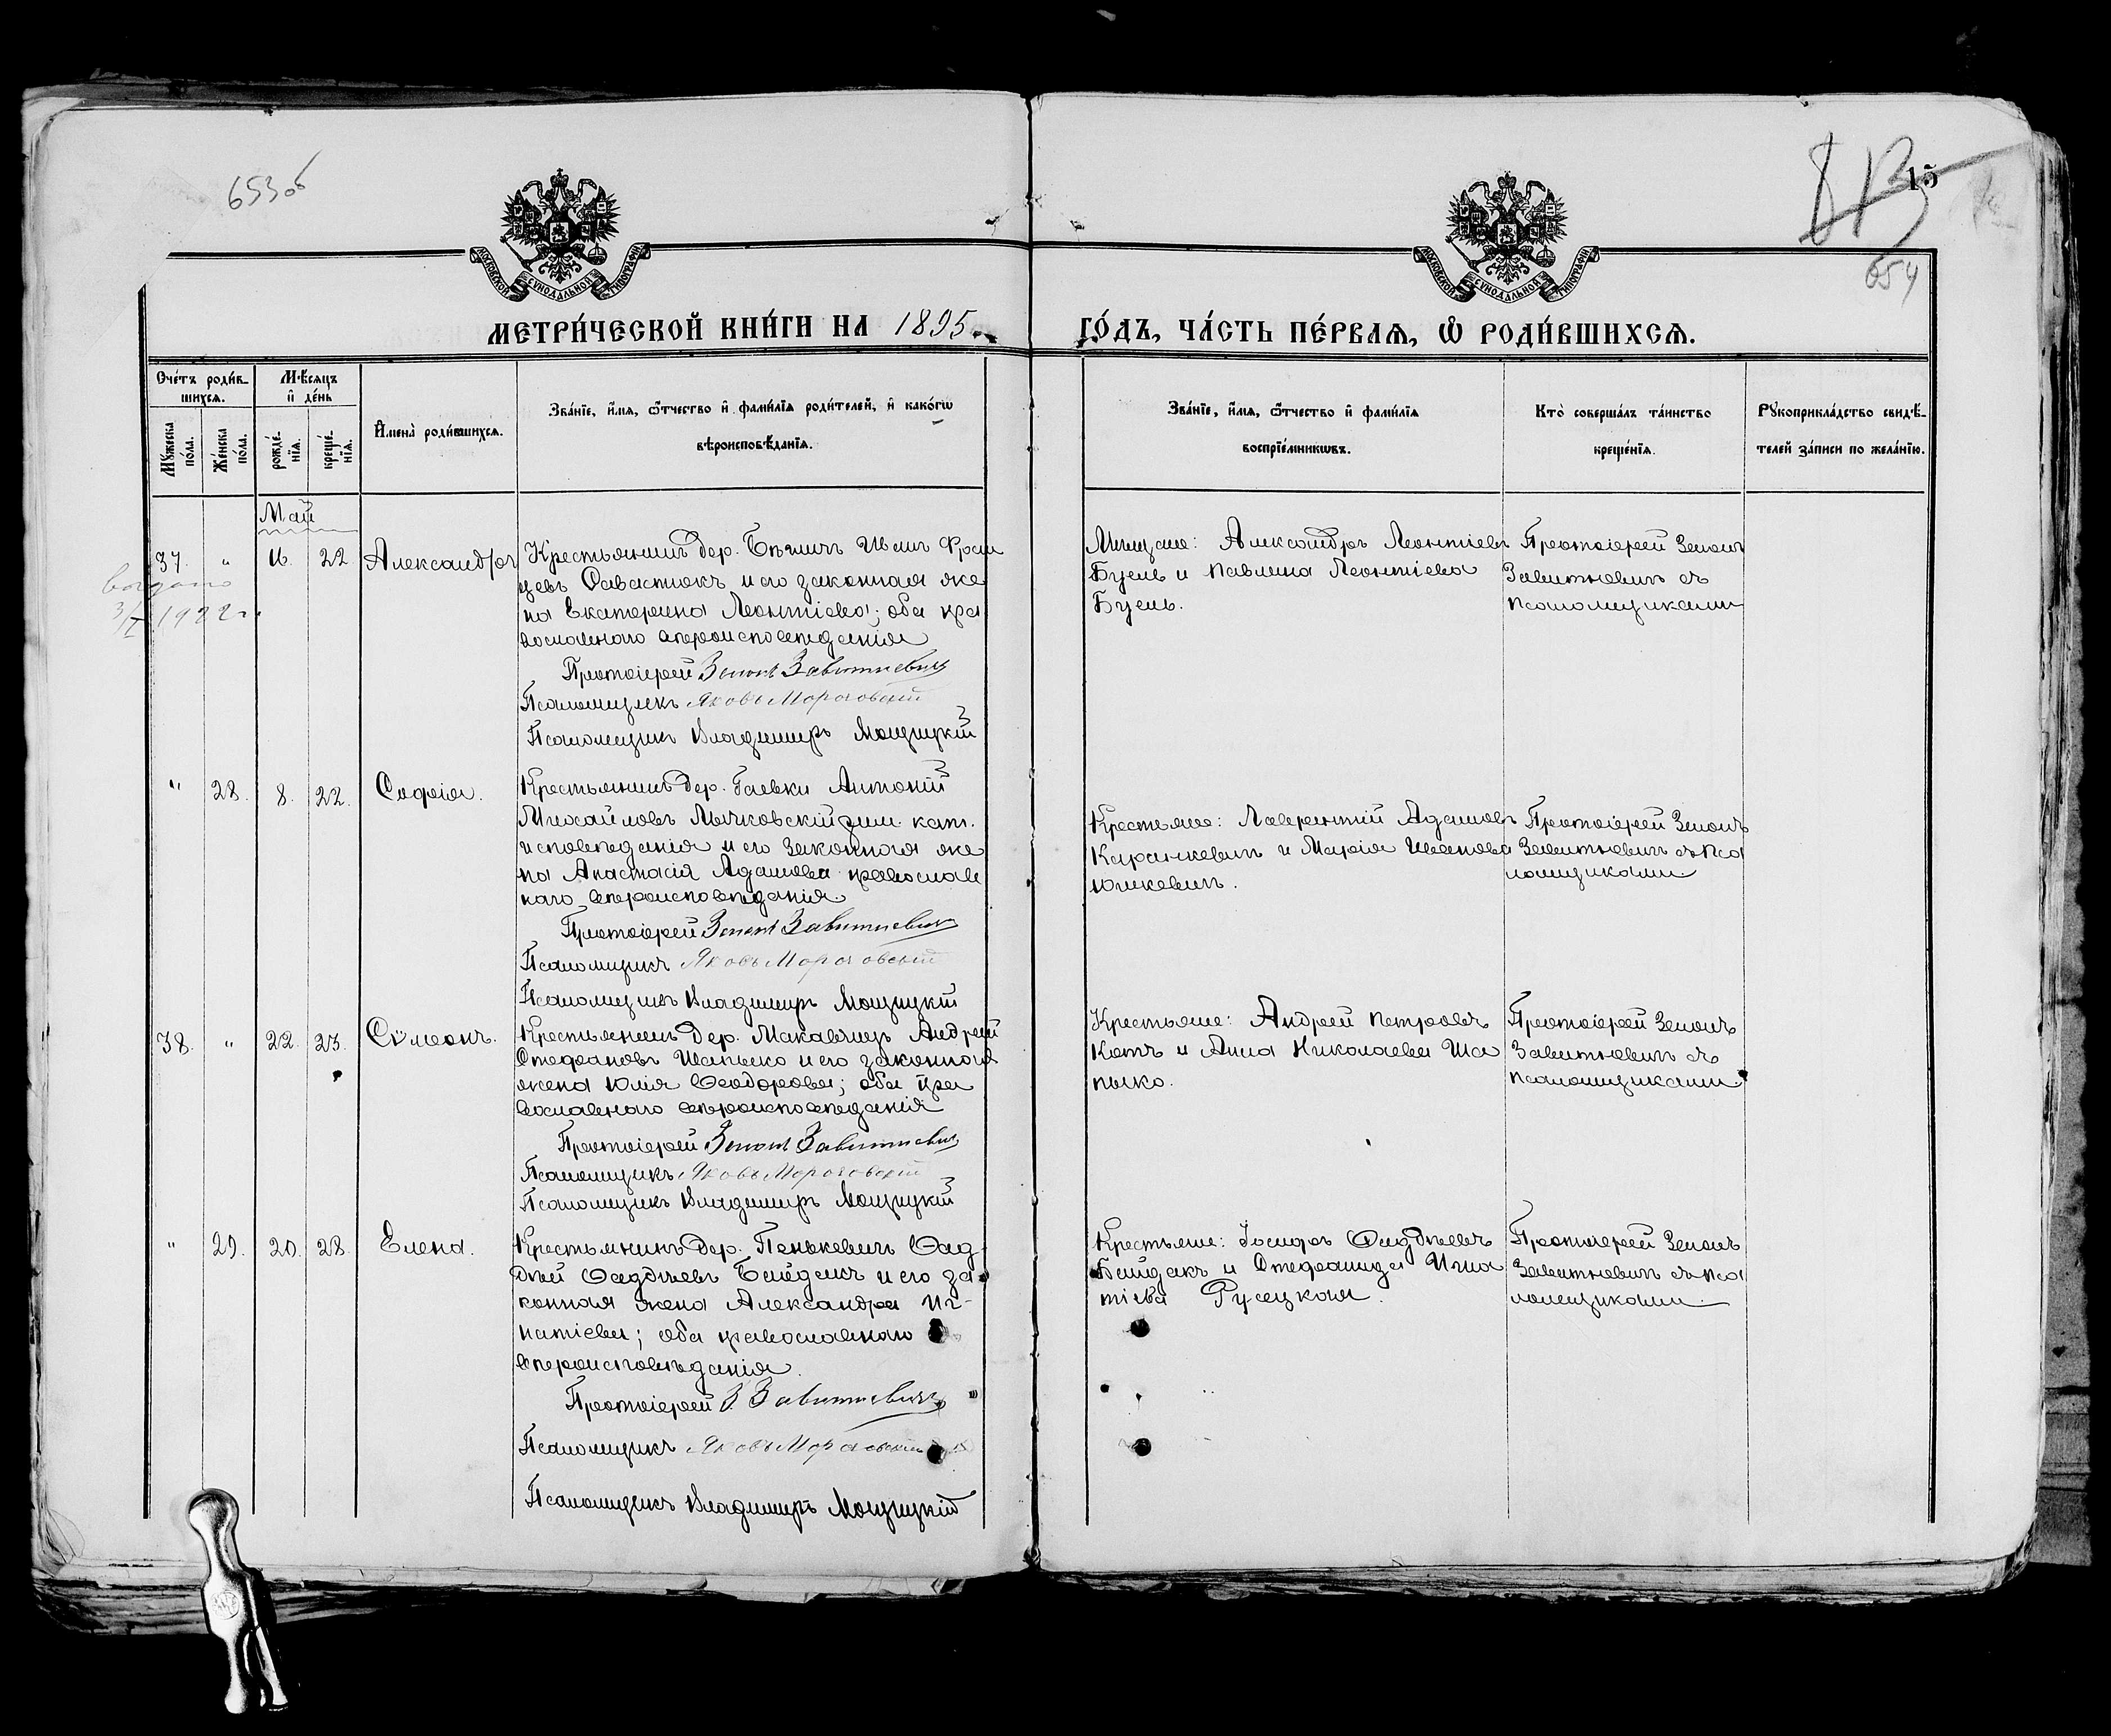 653об
15
654
МОСКОВСКОЙ СѴНОДАЛЬНОЙ ТИПОГРАФІИ
МОСКОВСКОЙ СѴНОДАЛЬНОЙ ТИПОГРАФІИ
МЕТРИ́ЧЕСКОЙ КНИ́ГИ НА 1895
ГО́ДЪ, ЧА́СТЬ ПЕ́РВАЯ, Ѽ РОДИ́ВШИХСЯ.
Счéтъ роди́в-
шихся.
Мѣсяцъ
и̂ де́нь
Мꙋжеска по́ла.
Же́нска по́ла.
рожде́-
нїѧ.
креще́-
нїѧ.
И̂мена̀ роди́вшихся.
Зва́нїе, и̂́мѧ, ѻ҆́тчество и̂ фами́лїѧ роди́телей, и̂ како́гѡ
вѣроисповѣ́данїѧ.
Зва́нїе, и̂́мѧ, ѻ҆́тчество и̂ фами́лїѧ
воспрїе́мникѡвъ.
Кто̀ соверша́лъ та́инство
креще́нїѧ.
Рꙋкоприкла́дство свидѣ́-
телей за́писи по жела́нїю.
Май
37. " 16. 22 Александръ
Крестьянинъ дер.
цевъ Савастюкъ и его законная же
на Екатерина Леонтіева; оба пра
вославнаго вѣроисповѣданія
Протоіерей Зенонъ Завитневичъ
Псаломщикъ Яковъ Мороговскій
Псаломщикъ Владимиръ Мощицкій
Мѣщане: Александръ Леонтіевъ
Буель и Павлина Леонтіева
Буель.
Протоіерей Зенонъ
Завитневичъ съ
псаломщиками
выдано
3/I 1922 г.
" 28. 8. 22. Софія.
Крестьянинъ дер. Гаевки Антоній
Михайловъ Лычковскій рим. кат.
исповѣданія и его законная же
на Анастасія Адамова православ
наго вѣроисповѣданія.
Протоіерей Зенонъ Завитневичъ
Псаломщикъ Яковъ Мороговскій
Псаломщикъ Владимиръ Мощицкій
Крестьяне: Лаврентій Адамовъ
Каранкевичъ и Марія Иванова
Юшкевичъ.
Протоіерей Зенонъ
Завитневичъ съ пса
ломщиками
38. " 22. 23. Сѵмеонъ.
Крестьянинъ дер. Макавчицъ Андрей
Стефановъ Шапько и его законная
жена Юлія Ѳеодорова; оба пра
вославнаго вѣроисповѣданія
Протоіерей Зенонъ Завитневичъ
Псаломщикъ Яковъ Мороговскій
Псаломщикъ Владимиръ Мощицкій
Крестьяне: Андрей Петровъ
Котъ и Анна Николаева Ша
пько.
Протоіерей Зенонъ
Завитневичъ съ
псаломщиками.
" 29. 20. 28. Елена.
Крестьянинъ дер. Пенькевичъ Ѳад
дѣй Ѳаддѣевъ Байдакъ и его за
конная жена Александра Иг-
натіева; оба православнаго
вѣроисповѣданія.
Протоіерей З. Завитневичъ
Псаломщикъ Яковъ Мороговскій
Псаломщикъ Владимиръ Мощицкій
Крестьяне: Іосифъ Ѳаддѣевъ
Байдакъ и Стефанида Игна
тіева Русецкая.
Протоіерей Зенонъ
Завитневичъ съ пса
ломщиками.